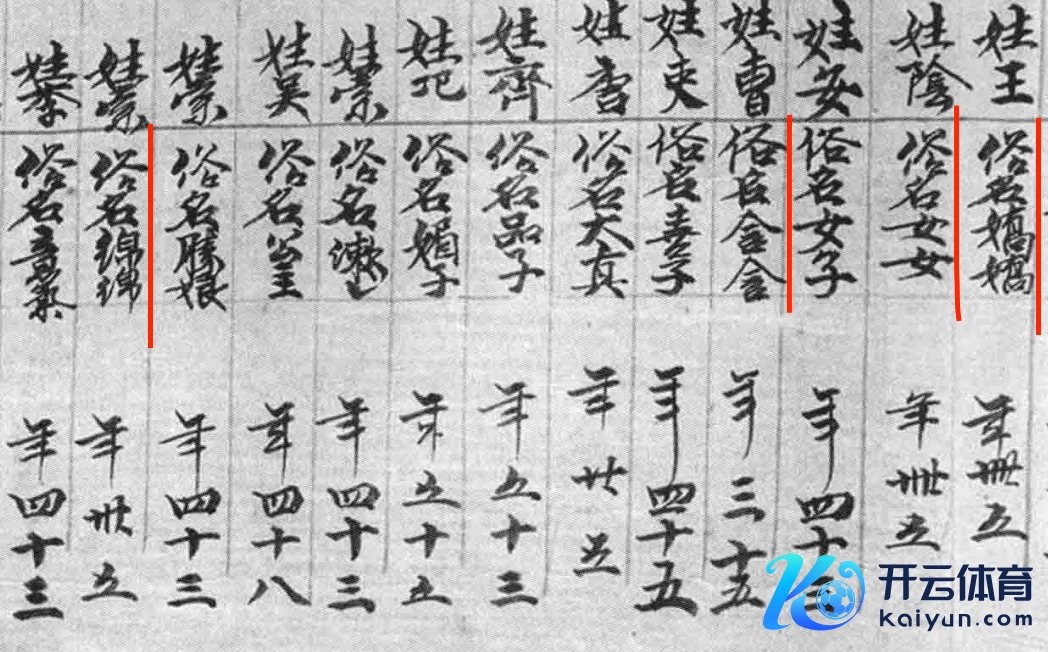 姓王 俗名嬌嬌 年卌五
姓陰 俗名女女 年卌五
姓安 俗名女子 年四十三
姓曹 俗名含含 年三十五
姓史 俗名喜子 年四十五
姓 俗名太真 年廿五
姓齊 俗名品子 年五十三
姓氾 俗名媚子 年五十五
姓索 俗名漱 年四十三
姓吴 俗名 年四十八
姓索 俗名勝娘 年四十三
姓索 俗名綿綿 年卅五
姓李 俗名 年四十三
开云体育
kaiyun.com